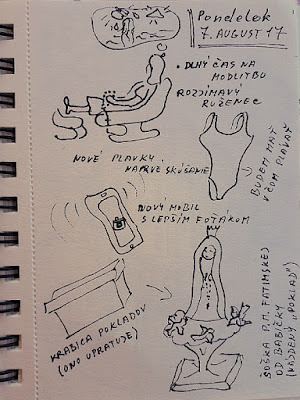 PONDELOK
7. AUGUST 17
• DLHÝ ČAS NA
MODLITBU
ROZJÍMAVÝ
RUŽENEC
NOVÉ PLAVKY.
NAPRVÉ SKÚŠANIE
BUDEM MAŤ
V ČOM PLÁVAŤ
NOVÝ MOBIL
S LEPŠÍM FOŤÁKOM
KRABICA POKLADOV
(ONO UPRATUJE)
ŠOŠKA P.M. FATIMSKEJ
OD BABIČKY
"POKLAD")